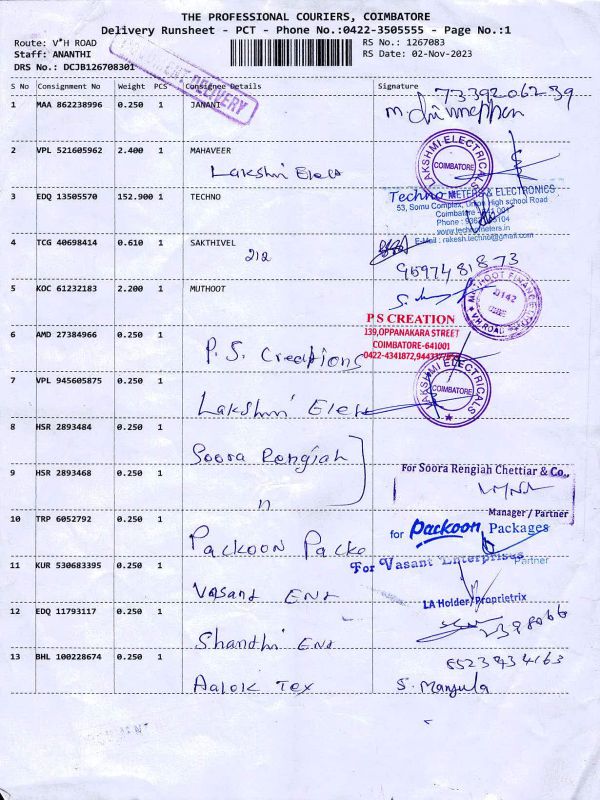 THE PROFESSIONAL COURIERS, COIMBATORE
Delivery Runsheet - PCT - Phone No.:0422-3505555 - Page No.:1
Route: V*H ROAD
Staff: ANANTHI
DRS No.: DCJB126708301
RS No.: 1267083
RS Date: 02-Nov-2023
DELIVERY
S No Consignment No Weight PCS Consignee Details Signature
1 MAA 862238996 0.250 1 JANANI
2 VPL 521605962 2.400 1 MAHAVEER
Lakshmi Elec
LAKSHMI ELECTRICALS
COIMBATORE
3 EDQ 13505570 152.900 1 TECHNO
Techno METERS & ELECTRONICS
53, Somu Complex, Union High school Road
Coimbatore
www.technometers.in
E-Mail : rakesh.techno@gmail.com
4 TCG 40698414 0.610 1 SAKTHIVEL
212
9597481873
5 KOC 61232183 2.200 1 MUTHOOT
MUTHOOT FINANCE
VH ROAD
6 AMD 27384966 0.250 1
P.S. Creations
P S CREATION
139,OPPANAKARA STREET
COIMBATORE-641001
7 VPL 945605875 0.250 1
Lakshmi Elec
LAKSHMI ELECTRICALS
COIMBATORE
8 HSR 2893484 0.250 1
Soora Rengiah
9 HSR 2893468 0.250 1
For Soora Rengiah Chettiar & Co.,
Manager / Partner
10 TRP 6052792 0.250 1
Packoon Packe
for Packoon Packages
Partner
11 KUR 530683395 0.250 1
Vasant Ent
For Vasant Enterprises
LA Holder/Proprietrix
12 EDQ 11793117 0.250 1
Shandhi Ent
13 BHL 100228674 0.250 1
Aalok Tex
S. Manjula